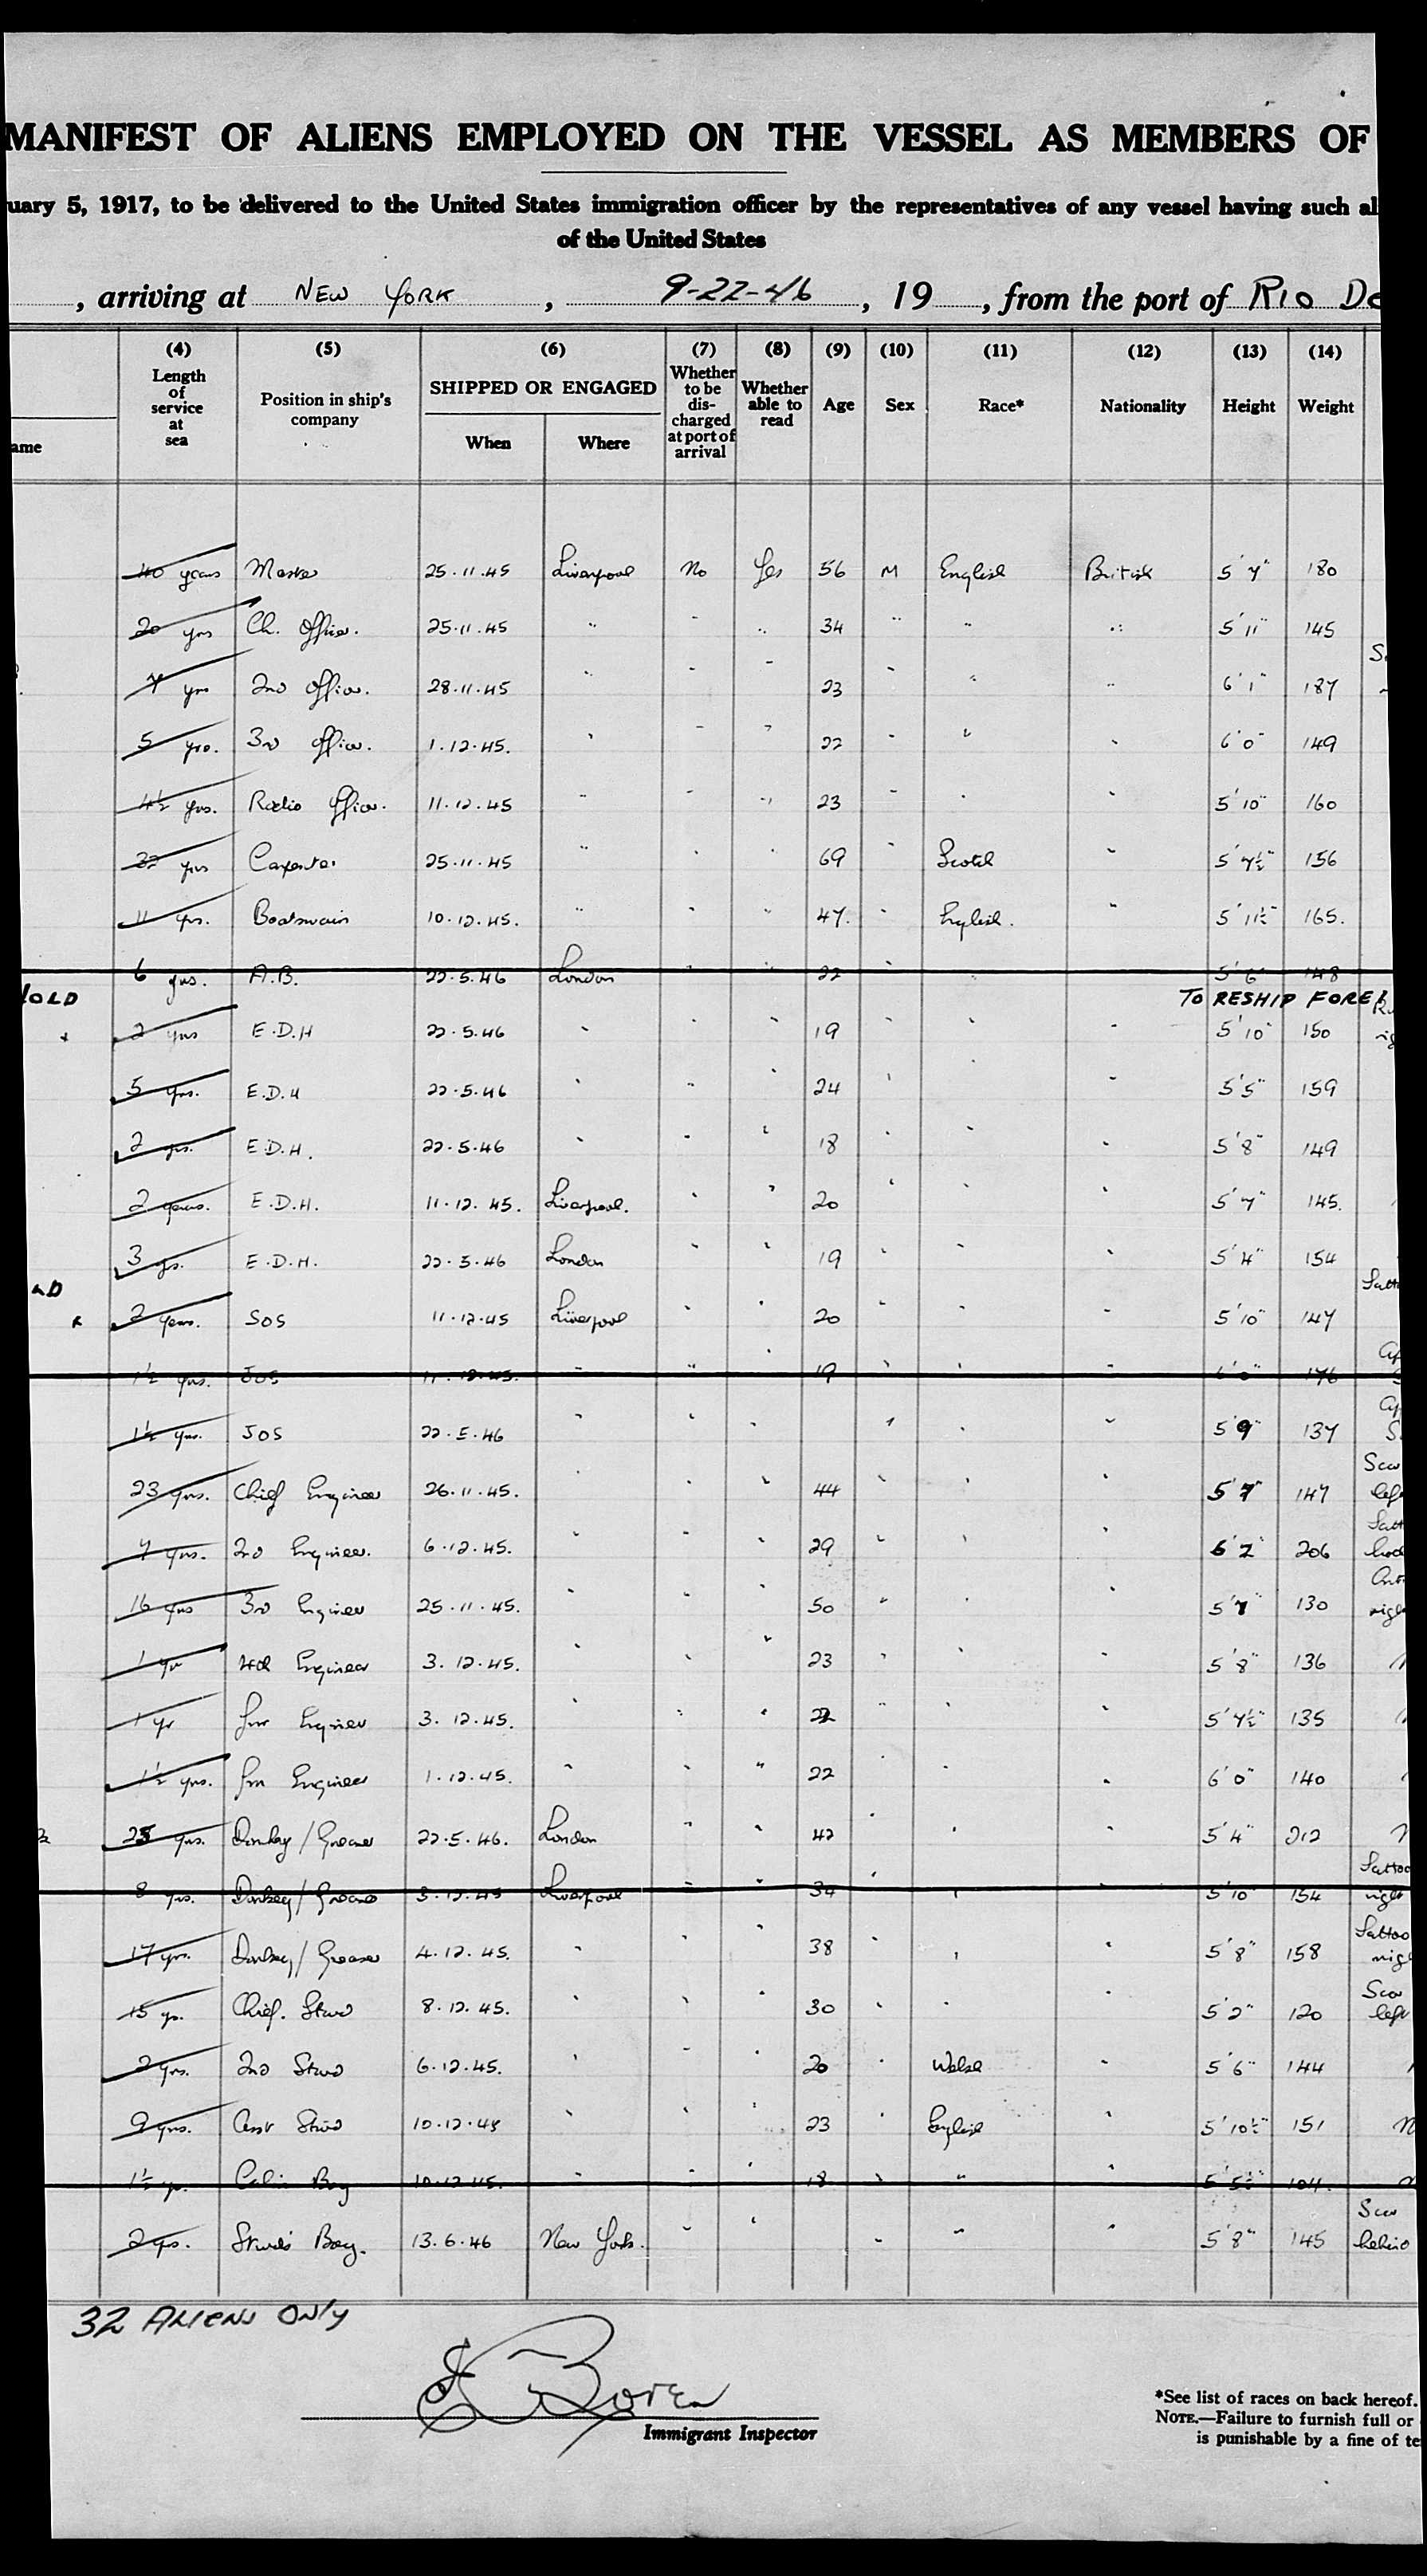 MANIFEST OF ALIENS EMPLOYED ON THE VESSEL AS MEMBERS OF
uary 5, 1917, to be delivered to the United States immigration officer by the representatives of any vessel having such al
of the United States
, arriving at NEW YORK , 9-22-46 , 19 , from the port of RIO De
(4) (5) (6) (7) (8) (9) (10) (11) (12) (13) (14)
ame Length of service at sea Position in ship's company SHIPPED OR ENGAGED When Where Whether to be discharged at port of arrival Whether able to read Age Sex Race* Nationality Height Weight
40 years Master 25.11.45 Liverpool No Yes 56 M English British 5'7" 180
20 yrs Ch. Officer. 25.11.45 " " " 34 " " " 5'11" 145
7 yrs 2nd Officer. 28.11.45 " " " 23 " " " 6'1" 187
5 yrs. 3rd Officer. 1.12.45. " " " 22 " " " 6'0" 149
4½ yrs. Radio Officer. 11.12.45 " " " 23 " " " 5'10" 160
32 yrs Carpenter 25.11.45 " " " 69 " Scotch " 5'7½" 156
11 yrs. Boatswain 10.12.45. " " " 47. " English. " 5'11½" 165.
6 yrs. A.B. 22.5.46 London " " 22 5'6" 148
OLD TO RESHIP FORE
2 yrs E.D.H 22.5.46 " " " 19 " " " 5'10" 150
5 yrs. E.D.H 22.5.46 " " " 24 " " 5'5" 159
2 yrs. E.D.H. 22.5.46 " " " 18 " " " 5'8" 149
2 years. E.D.H. 11.12.45. Liverpool. " " 20 " " " 5'7" 145.
3 yrs. E.D.H. 22.5.46 London " " 19 " " " 5'4" 154
2 years. SOS 11.12.45 Liverpool " " 20 " " " 5'10" 147
1½ yrs. JOS 11.12.45. " " " 19 " " " 6'0" 176
1½ yrs. JOS 22.5.46 " " " " " 5'9" 137
23 yrs. Chief Engineer 26.11.45. " " " 44 " " " 5'7" 147
7 yrs. 2nd Engineer. 6.12.45. " " " 29 " " " 6'2" 206
16 yrs 3rd Engineer 25.11.45. " " " 50 " " 5'7" 130
1 yr 4th Engineer 3.12.45. " " " 23 " " " 5'8" 136
1 yr Jnr Engineer 3.12.45. " " " 22 " " " 5'7½" 135
1½ yrs. Jnr Engineer 1.12.45. " " " 22 " " " 6'0" 140
25 yrs. Donkey/Greaser 22.5.46. London " " 42 " " " 5'4" 212
8 yrs. Donkey/Greaser 3.12.45 Liverpool " " 34 " " " 5'10" 154
17 yrs. Donkey/Greaser 4.12.45. " " " 38 " " " 5'8" 158
15 yrs. Chief. Stwd 8.12.45. " " " 30 " " " 5'2" 120
2 yrs. 2nd Stwd 6.12.45. " " " 20 " Welsh " 5'6" 144
9 yrs. Asst Stwd 10.12.45 " " " 23 " English " 5'10½" 151
1½ yr. Cabin Boy 10.12.45. " " " 18 " " " 5'5½" 104.
2 yrs. Stwd's Boy. 13.6.46 New York. " " " " " 5'8" 145
32 ALIENS ONLY
Immigrant Inspector
*See list of races on back hereof.
NOTE.—Failure to furnish full or
is punishable by a fine of te